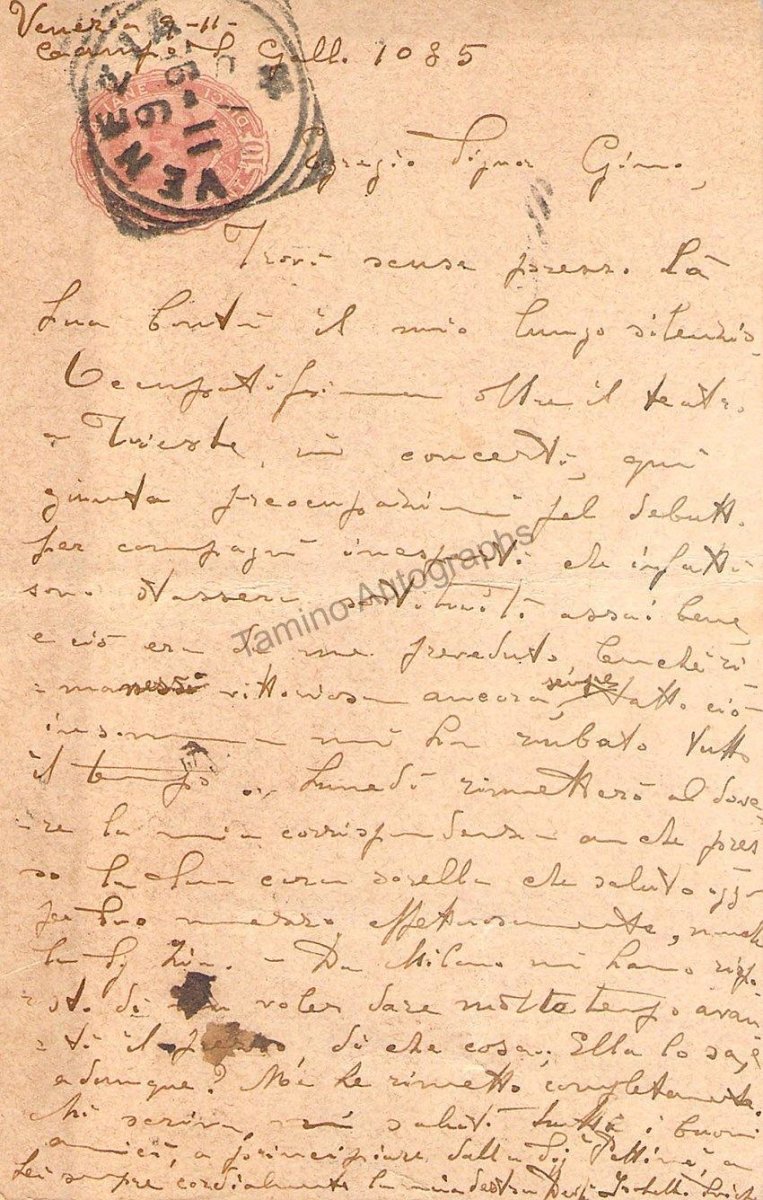 Venezia 9-11-
Gall. 1085
VENEZIA
9-11
96
Egregio Signor Gino,
Trovi scusa presso La
Sua bontà il mio lungo silenzio.
Occupatissima oltre il teatro
a Trieste, in concerti, qui
giunta preocupazioni pel debutto
per compagni inesperti che infatti
sono stassera sostituiti assai bene
e ciò era da me preveduto benchè ri
-manessi vittoriosa ancora, sempre tutto ciò
insomma mi ha rubato tutto
il tempo. Lunedì rimetterò al dove
-re la mia corrispondenza anche pres
so la Sua cara sorella che saluto oggi
pel Suo mezzo affettuosamente,
la Zia. - Da Milano mi hanno rispo
sto di non voler dare molto tempo avan
-ti il di che cosa. Ella lo sa, e
adunque? completamente.
Mi scriva, mi saluti tutti i buoni
amici, a principiare dalla
Lei sempre cordialmente la mia destra
Tamino Autographs